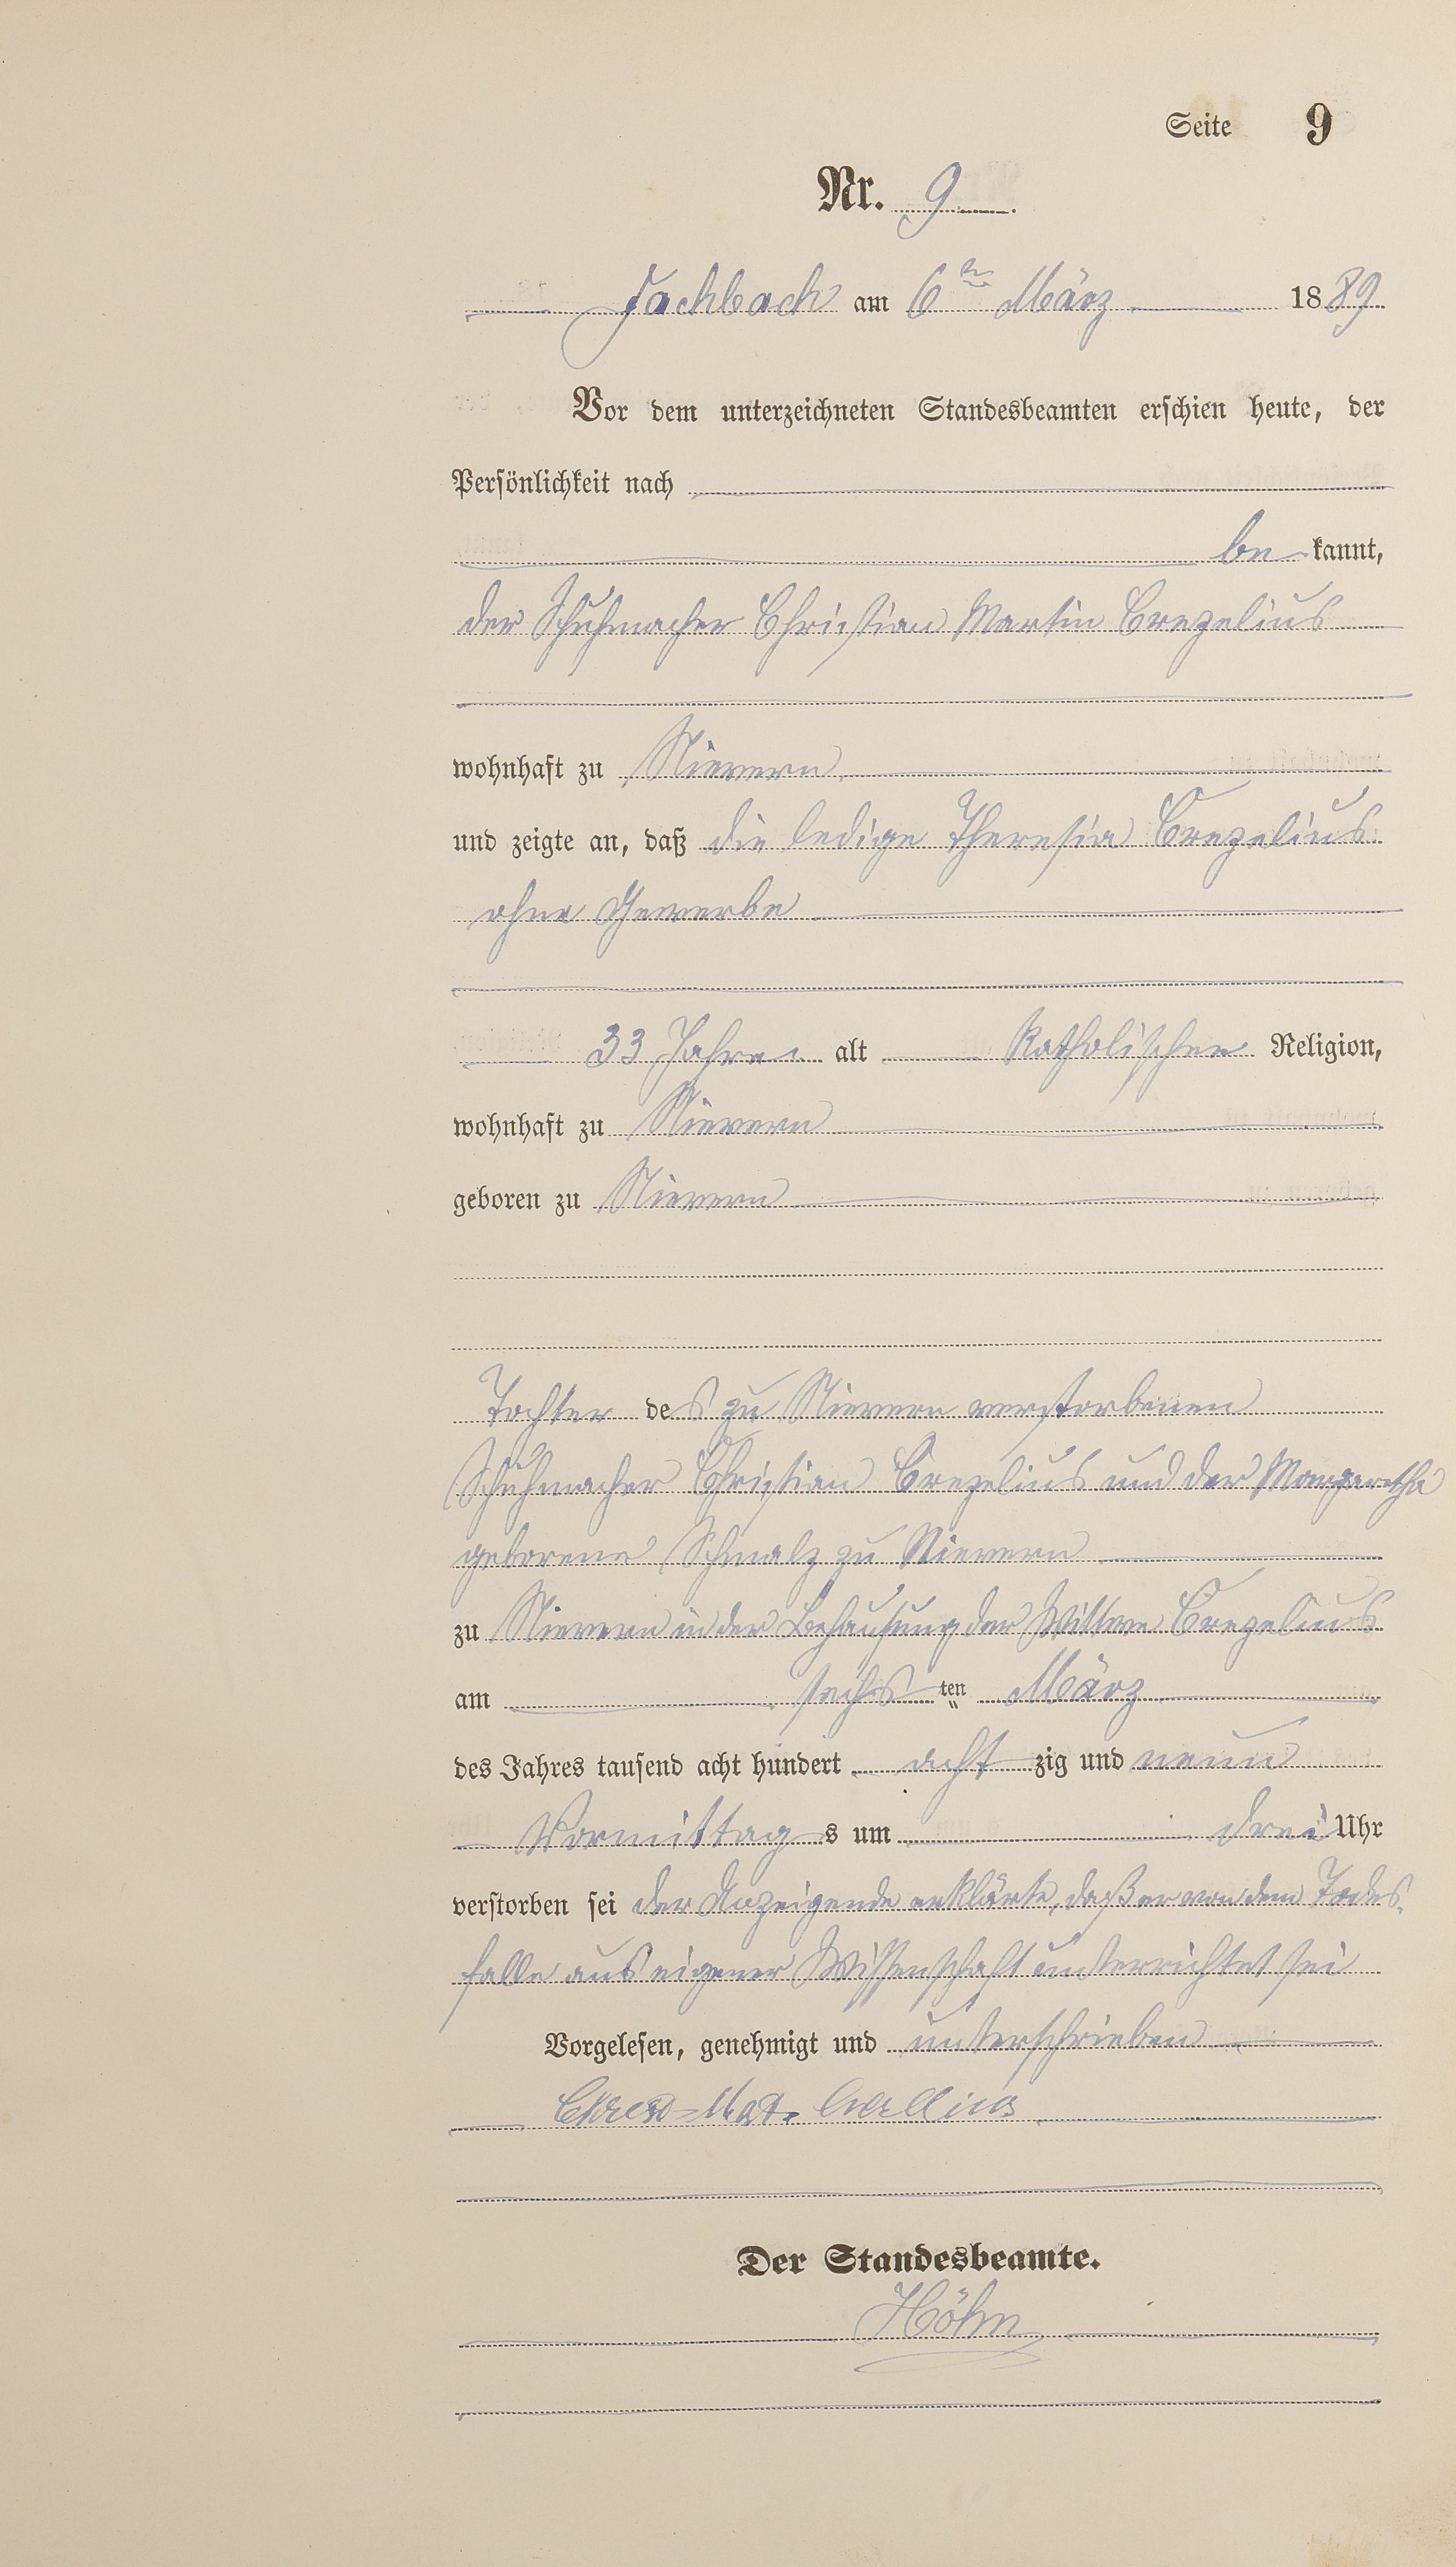 Seite 9
Nr. 9
Fachbach am 6ten März 1889
Vor dem unterzeichneten Standesbeamten erschien heute, der
Persönlichkeit nach
be kannt,
der Schuhmacher Christian Martin Crezelius
wohnhaft zu Nievern
und zeigte an, daß die ledige Theresia Crezelius
ohne Gewerbe
33 Jahre alt katholischer Religion,
wohnhaft zu Nievern
geboren zu Nievern
Tochter des zu Nievern verstorbenen
Schuhmacher Christian Crezelius und der Margaretha
geborene Schmalz zu Nievern
zu Nievern in der Behausung der Wittwe Crezelius
am sechs ten März
des Jahres tausend acht hundert acht zig und neun
Vormittag s um drei Uhr
verstorben sei der Anzeigende erklärte, daß er von dem Todes-
falle aus eigener Wissenschaft unterrichtet sei
Vorgelesen, genehmigt und unterschrieben
Der Standesbeamte.
Höhn